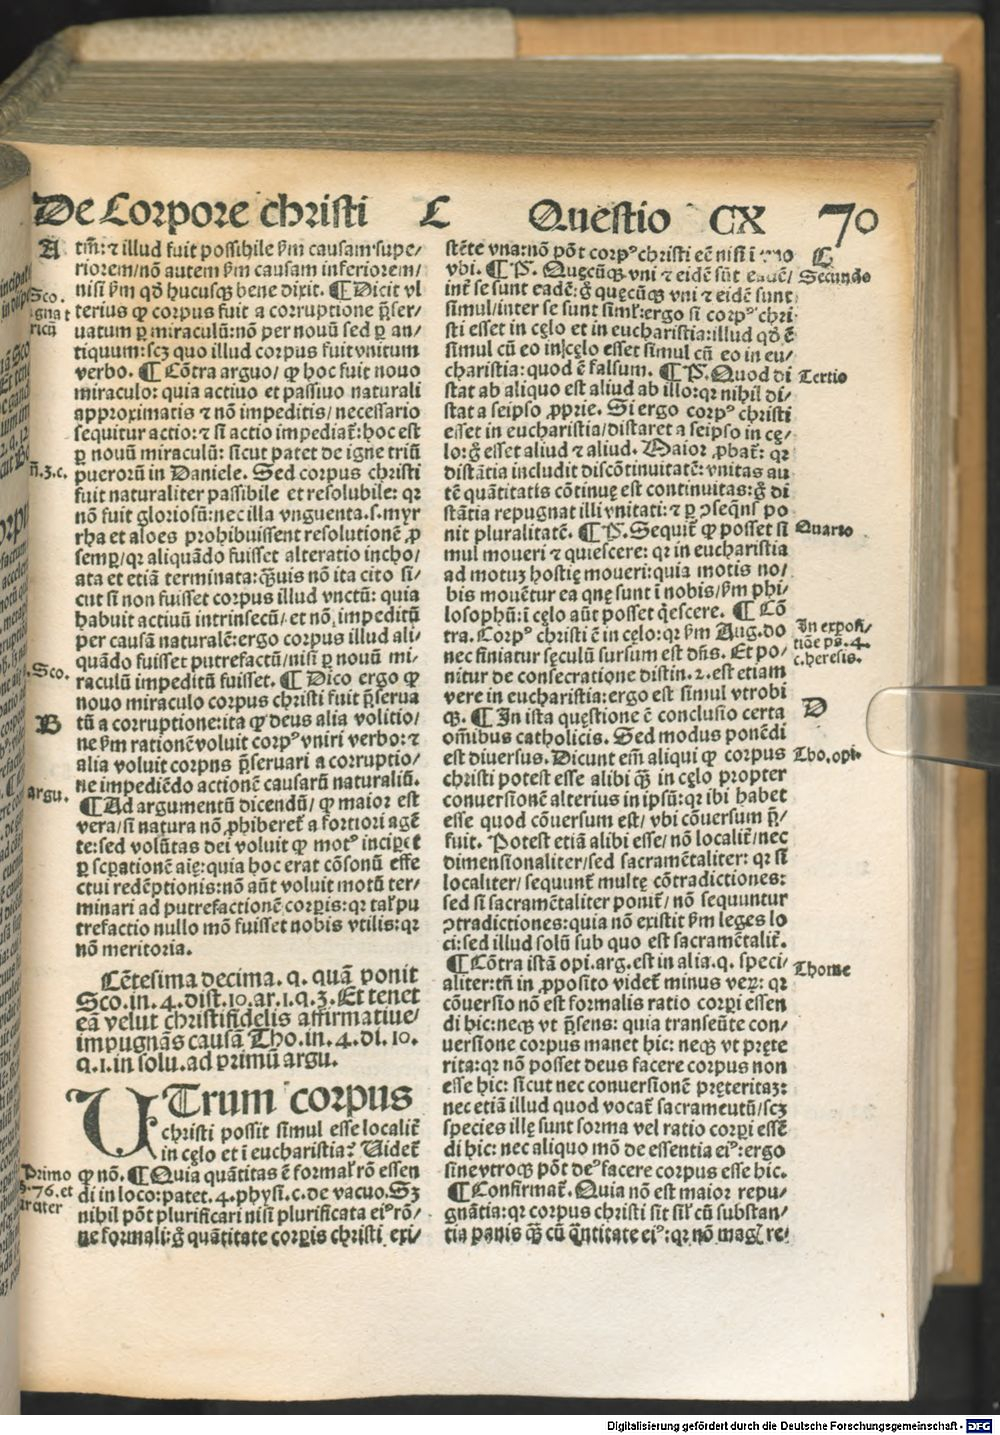 De Corpore christi L Questio CX 70
A
tm̄: ⁊ illud fuit possibile ẜm causam supe/
riorem/nō autem ẜm causam inferiorem/
nisi ẜm qd̄ hucusqꝫ bene dixit. ¶ Dicit vl
terius ꝙ corpus fuit a corruptione p̄ser/
uatum ꝑ miraculū: nō per nouū sed ꝑ an/
tiquum: scꝫ quo illud corpus fuit vnitum
verbo. ¶ Cōtra arguo/ ꝙ hoc fuit nouo
miraculo: quia actiuo et passiuo naturali
approximatis ⁊ nō impeditis/ necessario
sequitur actio: ⁊ si actio impediat̄: hoc est
ꝑ nouū miraculū: sicut patet de igne triū
puerorū in Daniele. Sed corpus christi
fuit naturaliter passibile et resolubile: qꝛ
nō fuit gloriosū: nec illa vnguenta. s. myr
rha et aloes prohibuissent resolutionē ꝓ
semꝑ/ qꝛ aliquādo fuisset alteratio incho/
ata et etiā terminata: qꝫuis nō ita cito si/
cut si non fuisset corpus illud vnctū: quia
habuit actiuū intrinsecū/ et nō impeditū
per causā naturalē: ergo corpus illud ali/
quādo fuisset putrefactū/nisi ꝑ nouū mi/
raculū impeditū fuisset. ¶ Dico ergo ꝙ
nouo miraculo corpus christi fuit p̄serua
tū a corruptione: ita ꝙ deus alia volitio/
ne ẜm rationē voluit corpꝰ vniri verbo: ⁊
alia voluit corpus p̄seruari a corruptio/
ne impediēdo actionē causarū naturaliū.
¶ Ad argumentū dicendū/ ꝙ maior est
vera/si natura nō ꝓhiberet̄ a fortiori agē
te: sed volūtas dei voluit ꝙ motꝰ inciperet
ꝑ seꝑationē aīę: quia hoc erat cōsonū effe
ctui redēptionis: nō aūt voluit motū ter/
minari ad putrefactionē corꝑis: qꝛ tal' pu
trefactio nullo mō fuisset nobis vtilis: qꝛ
nō meritoria.
Cētesima decima. q. quā ponit
Sco. in. 4. dist. 10. ar. 1. q. 3. Et tenet
eā velut christifidelis affirmatiue/
impugnās causā Tho. in. 4. di. 10.
q. 1. in solu. ad primū argu.
UTrum corpus
christi possit simul esse localit̄
in cęlo et ī eucharistia? Uidet̄
ꝙ nō. ¶ Quia quātitas ē formal' rō essen
di in loco: patet. 4. physi. c. de vacuo. Sꝫ
nihil pōt plurificari nisi plurificata eiꝰ rō/
ne formali: ḡ quātitate corꝑis christi exi/
Sco.
ñ. 3. c.
Sco.
B
argu.
Primo
stēte vna: nō pōt corpꝰ christi eē nisi ī vno
vbi. ¶ P̄. Quęcūqꝫ vni ⁊ eidē sūt eadē/
int̄ se sunt eadē: ḡ quęcūqꝫ vni ⁊ eidē sunt
simul/inter se sunt siml': ergo si corpꝰ chri
sti esset in cęlo et in eucharistia: illud qd̄ ē
simul cū eo in cęlo esset simul cū eo in eu/
charistia: quod ē falsum. ¶ P̄. Quod di
stat ab aliquo est aliud ab illo: qꝛ nihil di/
stat a seipso ꝓprie. Si ergo corpꝰ christi
esset in eucharistia/distaret a seipso in cę/
lo: ḡ esset aliud ⁊ aliud. Maior ꝓbat̄: qꝛ
distātia includit discōtinuitatē: vnitas au
tē quātitatis cōtinuę est continuitas: ḡ di
stātia repugnat illi vnitati: ⁊ ꝑ ꝯseqn̄s po
nit pluralitatē. ¶ P̄. Sequit̄ ꝙ posset si
mul moueri ⁊ quiescere: qꝛ in eucharistia
ad motuꝫ hostię moueri: quia motis no/
bis mouētur ea quę sunt ī nobis/ẜm phi/
losophū: ī cęlo aūt posset q̇escere. ¶ Cō
tra. Corpꝰ christi ē in cęlo: qꝛ ẜm Aug. do
nec finiatur sęculū sursum est dn̄s. Et po/
nitur de consecratione distin. 2. est etiam
vere in eucharistia: ergo est simul vtrobi
qꝫ. ¶ In ista quęstione ē conclusio certa
om̄ibus catholicis. Sed modus ponēdi
est diuersus. Dicunt em̄ aliqui ꝙ corpus
christi potest esse alibi qꝫ in cęlo propter
conuersionē alterius in ipsū: qꝛ ibi habet
esse quod cōuersum est/ vbi cōuersum p̄/
fuit. Potest etiā alibi esse/ nō localit̄/nec
dimensionaliter/sed sacramētaliter: qꝛ si
localiter/ sequunt̄ multę cōtradictiones:
sed si sacramētaliter ponit̄/ nō sequuntur
ꝯtradictiones: quia nō existit ẜm leges lo
ci: sed illud solū sub quo est sacramētalit̄.
¶ Cōtra istā opi. arg. est in alia. q. speci/
aliter: tn̄ in ꝓposito videt̄ minus veꝝ: qꝛ
cōuersio nō est formalis ratio corꝑi essen
di hic: neqꝫ vt p̄sens: quia transeūte con/
uersione corpus manet hic: neqꝫ vt pręte
rita: qꝛ nō posset deus facere corpus non
esse hic: sicut nec conuersionē pręteritaꝫ:
nec etiā illud quod vocat̄ sacramentū/scꝫ
species illę sunt forma vel ratio corꝑi essē
di hic: nec aliquo mō de essentia eiꝰ: ergo
sine vtroqꝫ pōt deꝰ facere corpus esse hic.
¶ Confirmat̄. Quia nō est maior repu/
gnātia: qꝛ corpus christi sit sil' cū substan/
tia panis qꝫ cū q̄ntitate eiꝰ: qꝛ nō mag̃ re/
C
Secundo
Tertio
Quarto
In exposi/
tiōe ps. 4.
c. heresis.
D
Tho. opi.
Thome
Digitalisierung gefördert durch die Deutsche Forschungsgemeinschaft - DFG